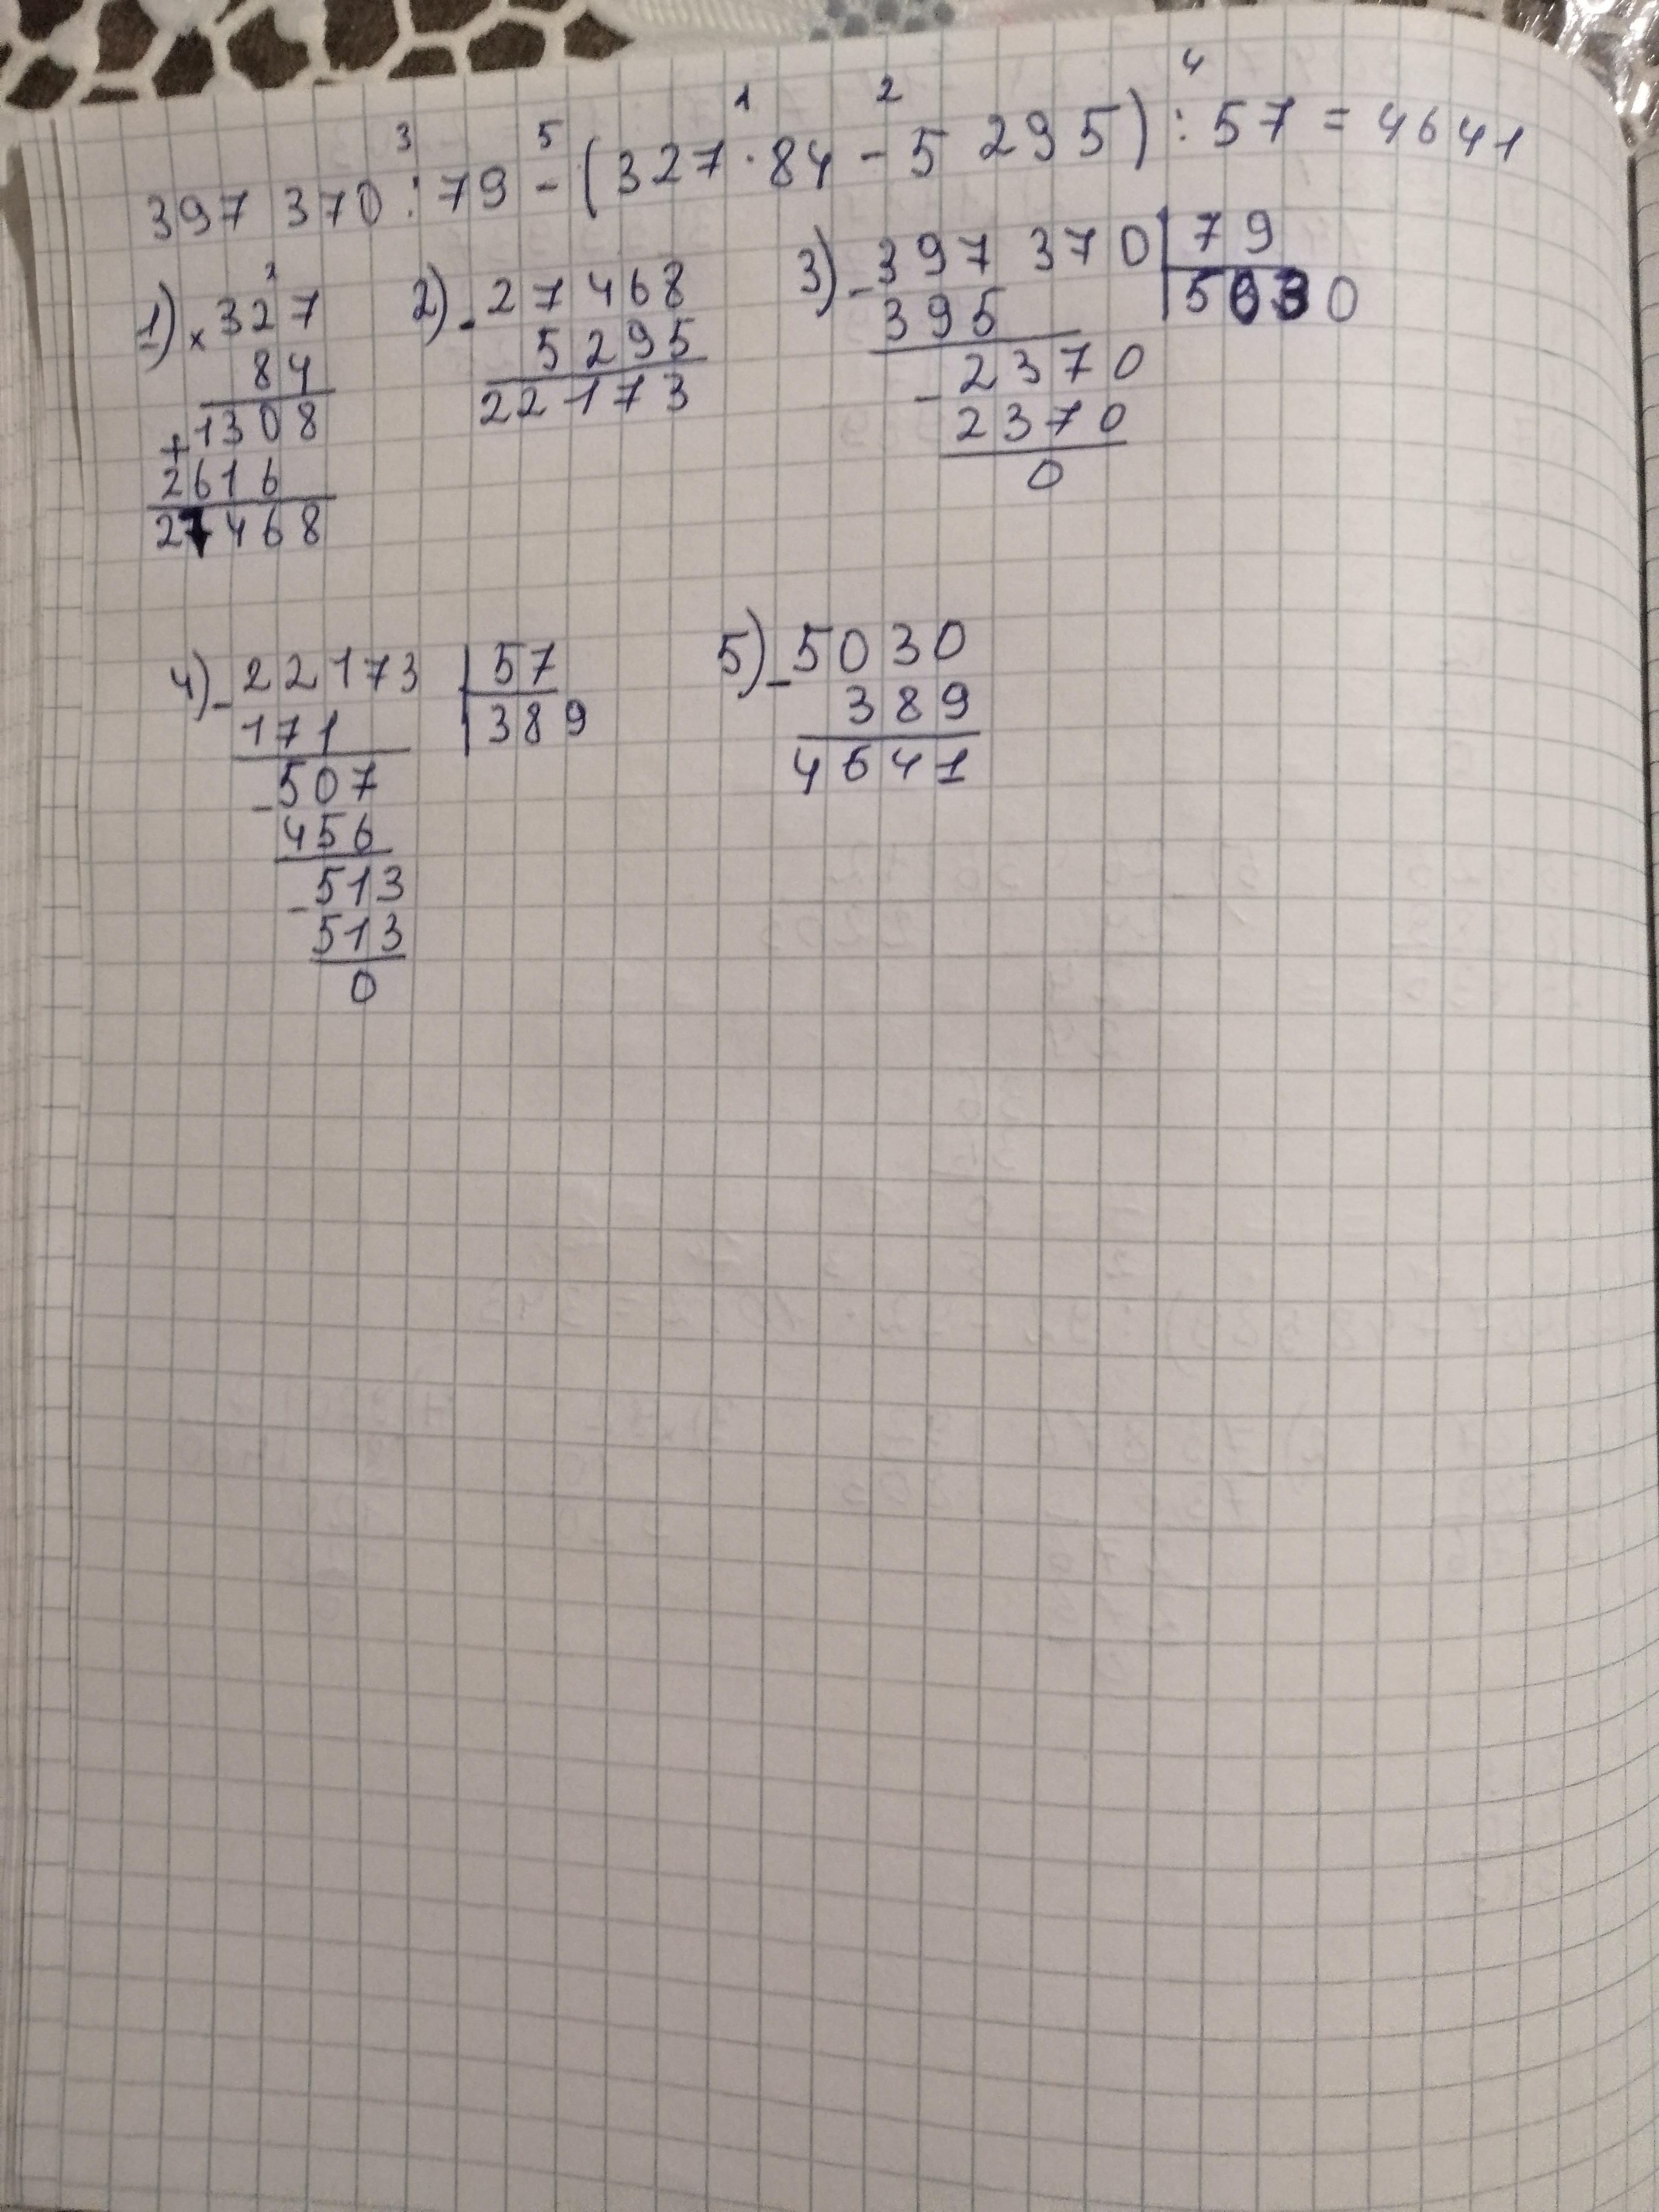 3 5 1 2 4
397 370 : 79 - (327 · 84 - 5 295) : 57 = 4641
1) × 327
84
+ 1308
2616
27468
2) - 27468
5295
22173
3) - 397 370 | 79
395 | 5030
- 2370
2370
0
4) - 22173 | 57
171 | 389
- 507
456
- 513
513
0
5) - 5030
389
4641